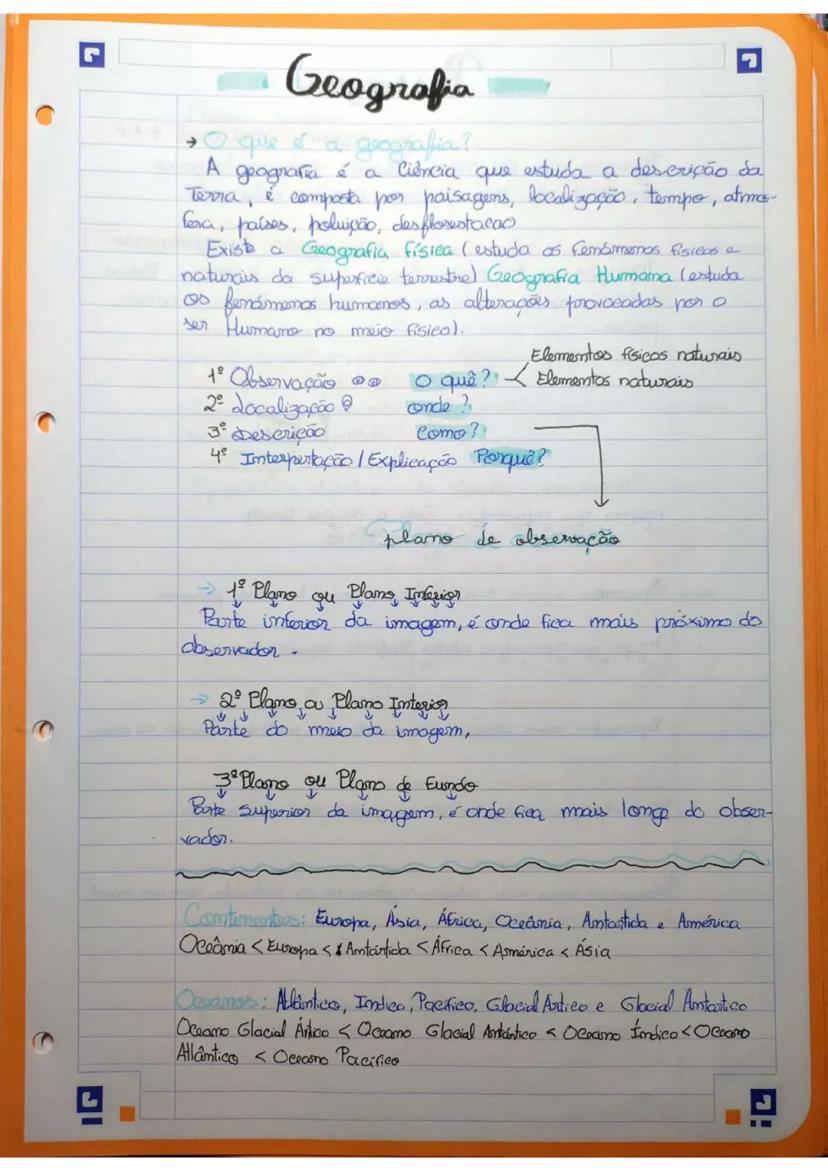 Geografia
→ O que é a geografia?
A geografia é a Ciência que estuda a descrição da
Terra, é composta por paisagens, localização, tempo, atmos-
fera, países, poluição, desflorestacao
Existe a Geografia física (estuda os fenómenos físicos e
naturais da superfície terrestre) Geografia Humana (estuda
os fenómenos humanos, as alterações provocadas por o
ser Humano no meio físico).
Elementos físicos naturais
1º Observação O quê? < Elementos naturais
2º Localização onde?
3º Descrição Como?
4º Interpertação / Explicação Porquê?
plano de observação
→ 1º Plano ou Plano Inferior
Parte inferior da imagem, é onde fica mais próximo do
observador.
→ 2º Plano ou Plano Interior
Parte do meio da imagem,
3º Plano ou Plano de Fundo
Parte superior da imagem, é onde fica mais longe do obser-
vador.
Continentes: Europa, Ásia, África, Oceânia, Antartida e América
Oceânia < Europa < Antártida < África < América < Ásia
Oceanos: Atlântico, Indico, Pacífico, Glacial Artico e Glacial Antartico
Oceano Glacial Ártico < Oceano Glacial Antártico < Oceano Índico < Oceano
Atlântico < Oceano Pacífico